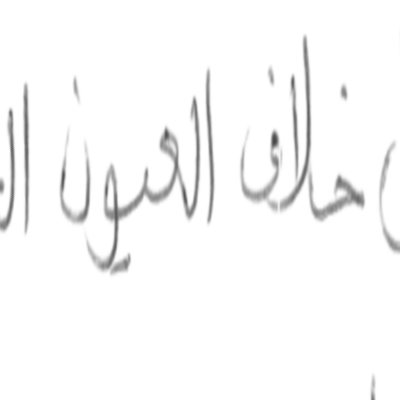 خلاف العيون